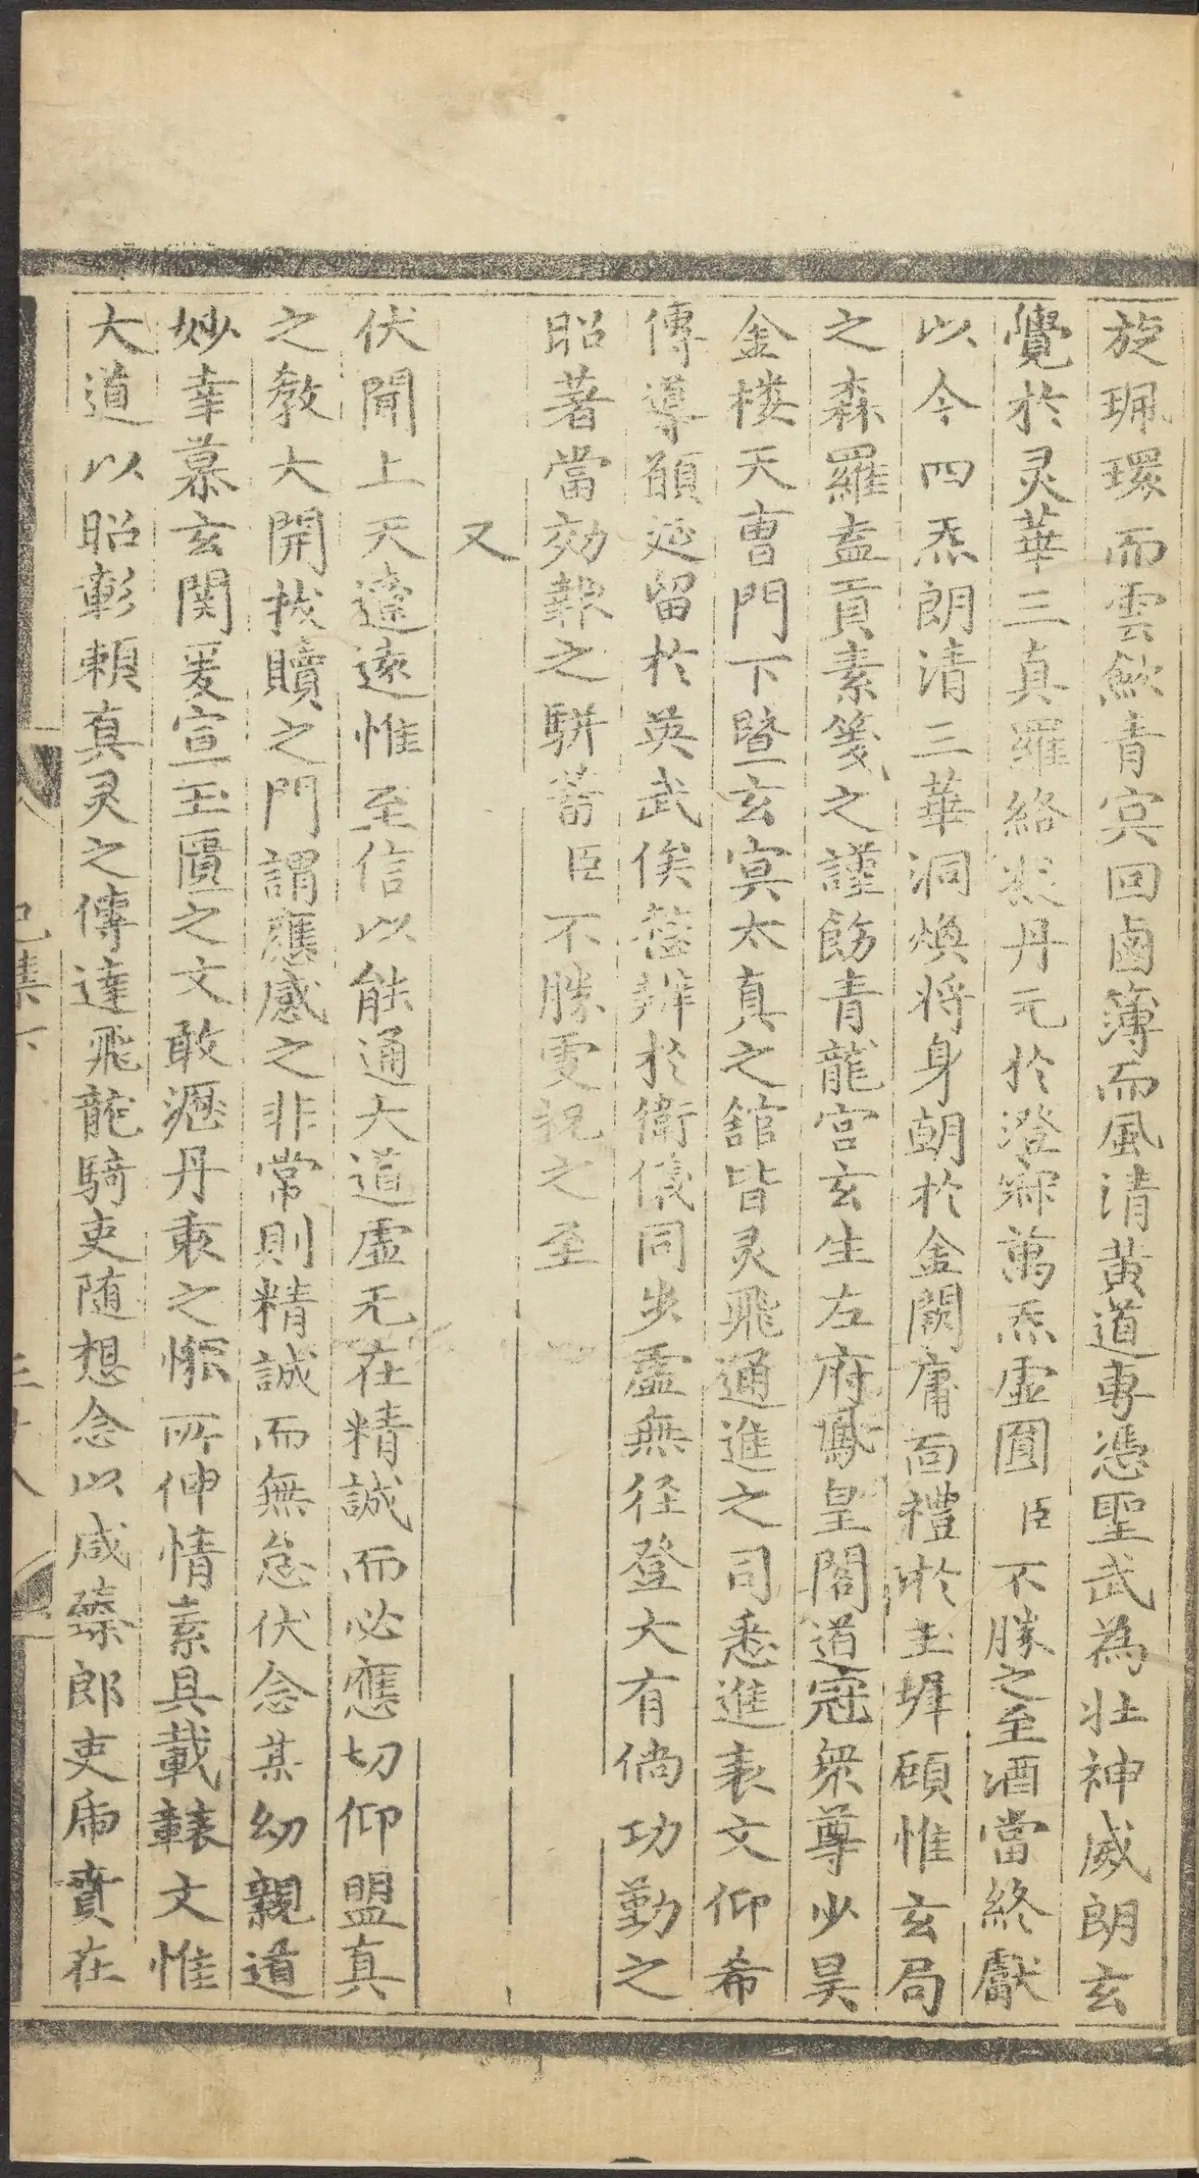 旋珮環而雲歛青㝠回鹵簿而風清黃道專憑聖武為壯神威朗玄
覺於灵華三真羅絡丹元於澄寂萬炁虛圓臣不勝之至酒當終獻
以今四炁朗清三華洞煥將身朝於金闕庸靣禮於玉墀顧惟玄局
之森羅盍貢素箋之謹飭青龍宮玄生左府鳳皇閣道冠衆尊少昊
金楼天曹門下曁玄㝠太真之舘皆灵飛通進之司悉進表文仰希
傳導願延留於英武俟辦於衛儀同步虛無径登大有倘功勤之
昭著當効報之駢蕃臣不勝祝之至
又
伏聞上天遼遠惟至信以能通大道虛无在精誠而必應切仰盟真
之教大開拔贖之門謂應感之非常則精誠而無怠伏念某幼親道
妙幸慕玄関爰宣玉匱之文敢瀝丹衷之懇所伸情素具載轅文惟
大道以昭彰頼真灵之傳達飛龍騎吏随想念以咸臻郎吏虎賁在